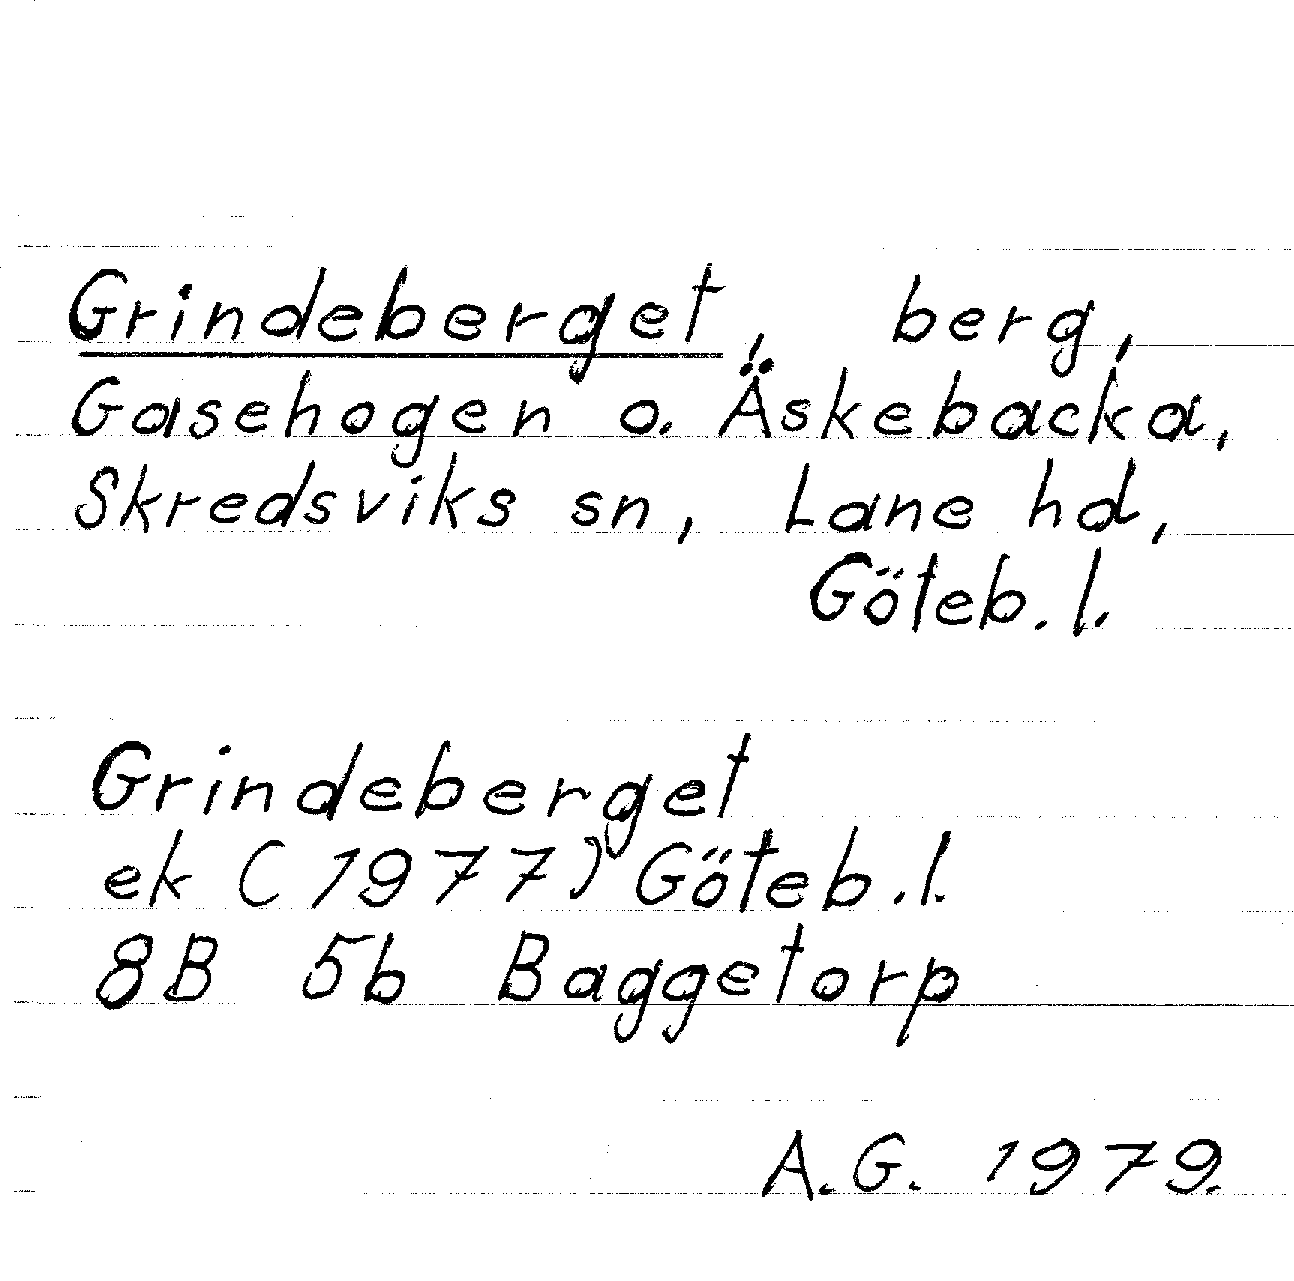 Grindeberget, berg,
Gasehogen o. Äskebacka,
Skredsviks sn, Lane hd,
Göteb. l.
Grindeberget
ek (1977) Göteb. l.
8B 5b Baggetorp
A.G. 1979.